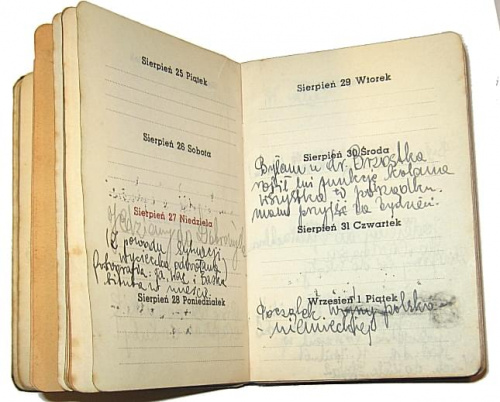 Sierpień 25 Piątek
Sierpień 26 Sobota
Sierpień 27 Niedziela
Z powodu sytuacji
wycieczka odwołana
fotografia
w mieście
Sierpień 28 Poniedziałek
Sierpień 29 Wtorek
Sierpień 30 Środa
Byłam u dr.
robił mi punkcję kolana
wszystko w porządku.
mam przyjść za tydzień.
Sierpień 31 Czwartek
Wrzesień 1 Piątek
Początek wojny polsko
- niemieckiej